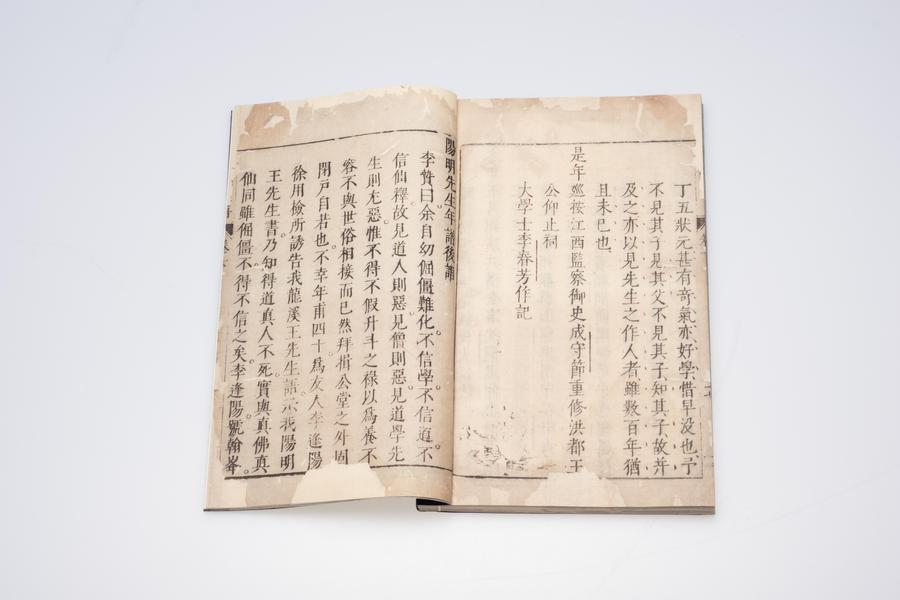 丁五狀元甚有奇氣亦好學惜早没也予
不見其子見其父不見其子知其子故并
及之亦以見先生之作人者雖數百年猶
且未已也
是年巡按江西監察御史成守節重修洪都王
公仰止祠
大學士李春芳作記
陽明先生年譜後語
李贄曰余自幼倔彊難化不信學不信道不
信仙釋故見道人則惡見僧則惡見道學先
生則尤惡惟不得不假升斗之祿以為養不
容不與世俗相接而已然拜揖公堂之外固
閉戶自若也不幸年甫四十為友人李逢陽
徐用檢所誘告我龍溪王先生語示我陽明
王先生書乃知得道真人不死實與真佛真
仙同雖倔彊不得不信之矣李逢陽號翰峯